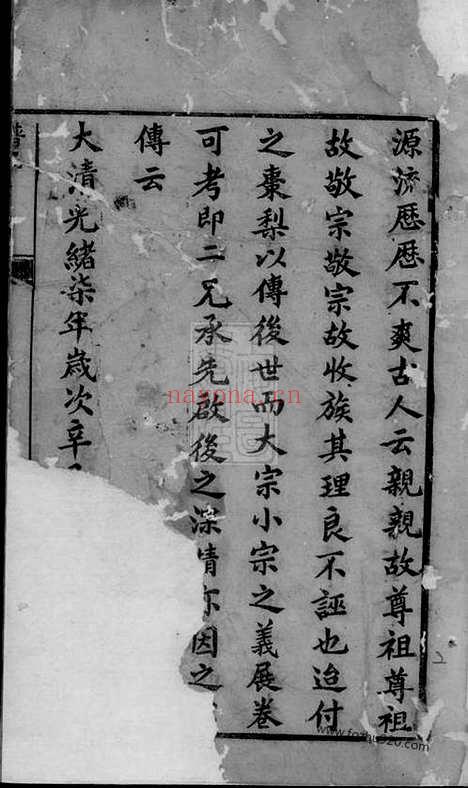 源流歷歷不爽古人云親親故尊祖尊祖
故敬宗敬宗故收族其理良不誣也迨付
之棗梨以傳後世而大宗小宗之義展卷
可考即二兄承先啟後之深情亦因之
傳云
大清光緒柒年歲次辛
nayona.cn
www.fozhu920.com